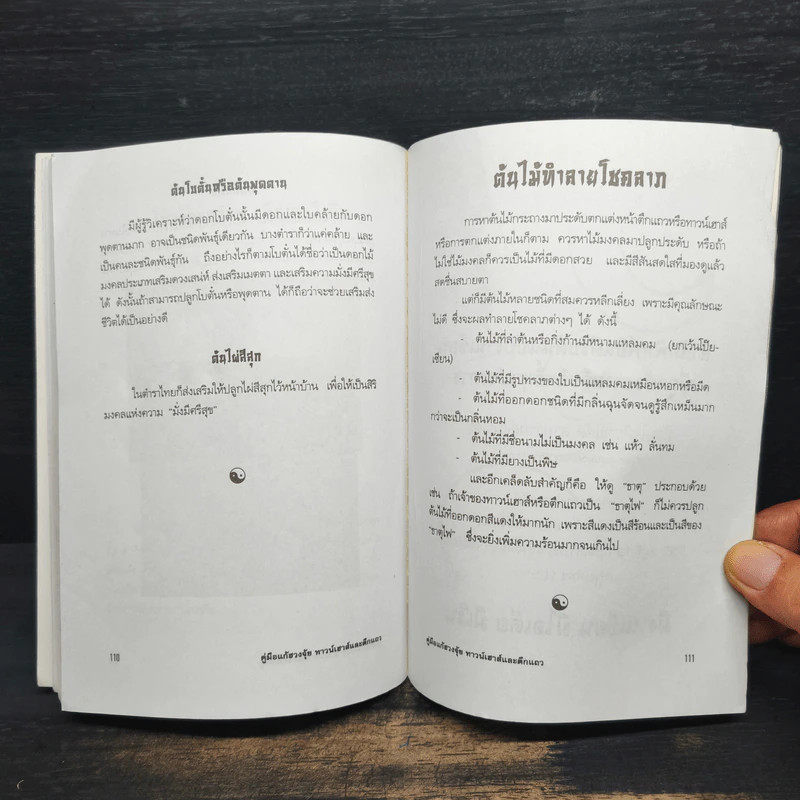 ต้นโบตั๋นหรือต้นพุดตาน
มีผู้รู้วิเคราะห์ว่าดอกโบตั๋นนั้นมีดอกและใบคล้ายกับดอก
พุดตานมาก อาจเป็นชนิดพันธุ์เดียวกัน บางตำราก็ว่าแค่คล้าย และ
เป็นคนละชนิดพันธุ์กัน ถึงอย่างไรก็ตามโบตั๋นได้ชื่อว่าเป็นดอกไม้
มงคลประเภทเสริมดวงเสน่ห์ ส่งเสริมเมตตา และเสริมความมั่งมีศรีสุข
ได้ ดังนั้นถ้าสามารถปลูกโบตั๋นหรือพุดตาน ได้ก็ถือว่าจะช่วยเสริมส่ง
ชีวิตได้เป็นอย่างดี
ต้นไผ่สีสุก
ในตำราไทยก็ส่งเสริมให้ปลูกไผ่สีสุกไว้หน้าบ้าน เพื่อให้เป็นสิริ
มงคลแห่งความ "มั่งมีศรีสุข"
110
คู่มือแก้ฮวงจุ้ย ทาวน์เฮาส์และตึกแถว
ต้นไม้ทำลายโชคลาภ
การหาต้นไม้กระถางมาประดับตกแต่งหน้าตึกแถวหรือทาวน์เฮาส์
หรือการตกแต่งภายในก็ตาม ควรหาไม้มงคลมาปลูกประดับ หรือถ้า
ไม่ใช่ไม้มงคลก็ควรเป็นไม้ที่มีดอกสวย และมีสีสันสดใสที่มองดูแล้ว
สดชื่นสบายตา
แต่ก็มีต้นไม้หลายชนิดที่สมควรหลีกเลี่ยง เพราะมีคุณลักษณะ
ไม่ดี ซึ่งจะมีผลทำลายโชคลาภต่างๆ ได้ ดังนี้
- ต้นไม้ที่ลำต้นหรือกิ่งก้านมีหนามแหลมคม (ยกเว้นโป๊ย-
เซียน)
- ต้นไม้ที่มีรูปทรงของใบเป็นแหลมคมเหมือนหอกหรือมีด
- ต้นไม้ที่ออกดอกชนิดที่มีกลิ่นฉุนจัดจนดูรู้สึกเหม็นมาก
กว่าจะเป็นกลิ่นหอม
- ต้นไม้ที่มีชื่อนามไม่เป็นมงคล เช่น แห้ว ลั่นทม
- ต้นไม้ที่มียางเป็นพิษ
และอีกเคล็ดลับสำคัญก็คือ ให้ดู "ธาตุ" ประกอบด้วย
เช่น ถ้าเจ้าของทาวน์เฮาส์หรือตึกแถวเป็น "ธาตุไฟ" ก็ไม่ควรปลูก
ต้นไม้ที่ออกดอกสีแดงให้มากนัก เพราะสีแดงเป็นสีร้อนและเป็นสีของ
"ธาตุไฟ" ซึ่งจะยิ่งเพิ่มความร้อนมากจนเกินไป
คู่มือแก้ฮวงจุ้ย ทาวน์เฮาส์และตึกแถว
111